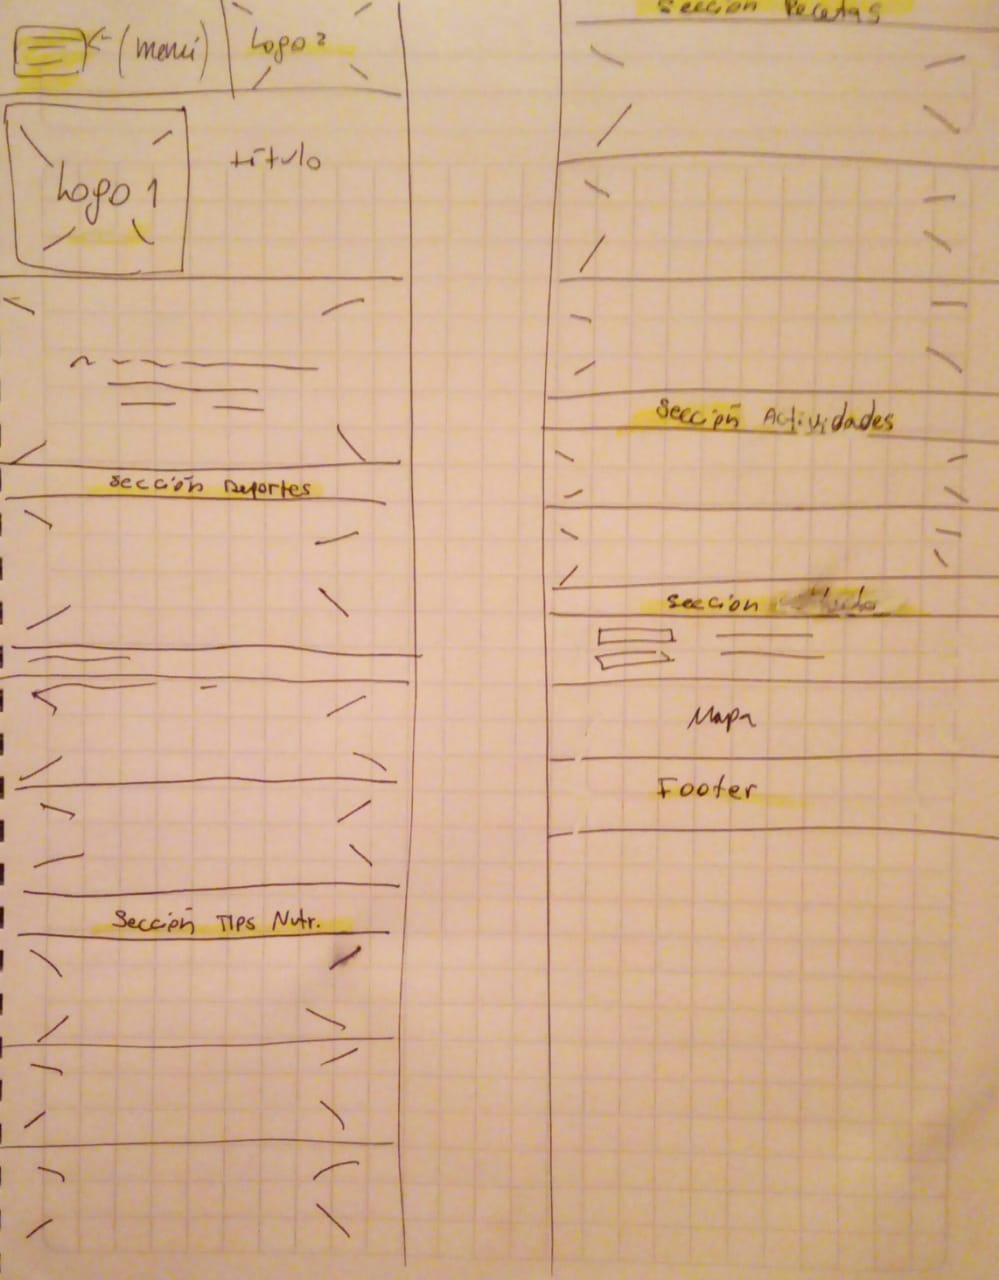 (menú)
Logo 2
Logo 1
título
Sección Deportes
Sección Tips Nutr.
Sección Recetas
Sección Actividades
Sección
Mapa
Footer